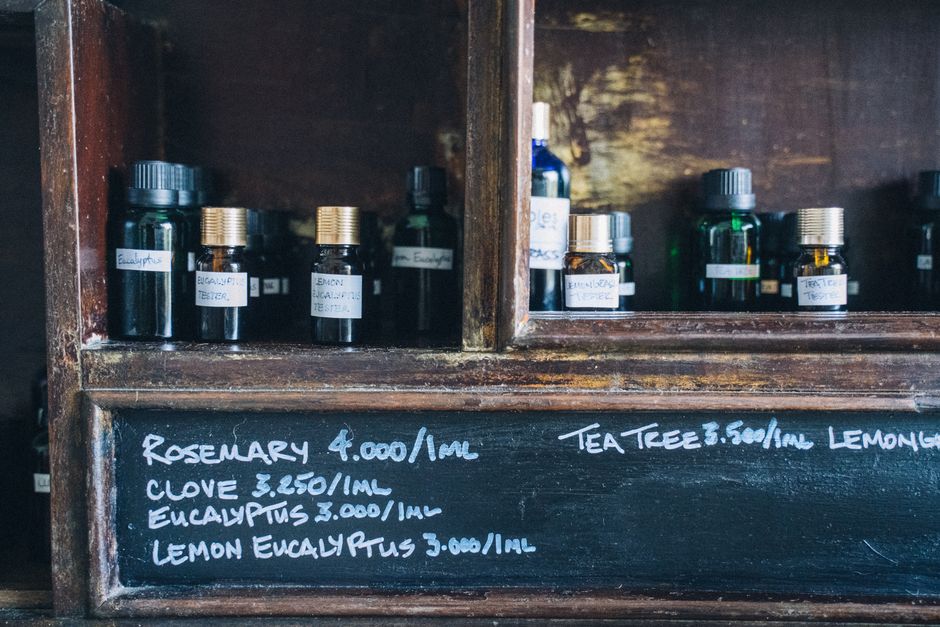 Eucalyptus
EUCALYPTUS
TESTER.
LEMON
EUCALYPTUS
TESTER.
Eucalyptus
LEMONGRASS
TESTER
TEA TREE
TEA TREE
TESTER
ROSEMARY 4.000/1ML
CLOVE 3.250/1ML
EUCALYPTUS 3.000/1ML
LEMON EUCALYPTUS 3.000/1ML
TEA TREE 3.500/1ML LEMONG